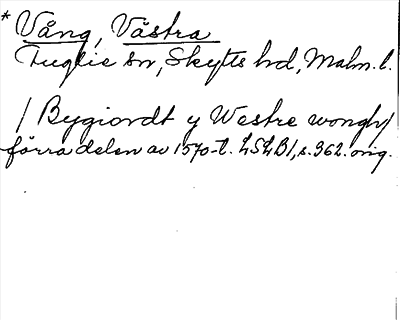 * Vång, Västra
Fuglie sn, Skytts hd, Malm. l.
/ Bygiordt y Westre wongh /
förra delen av 1570-t. LSLB1, s. 362. orig.